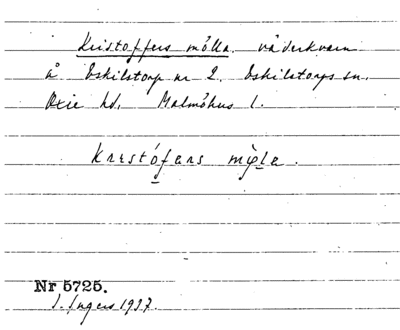 Kristoffers mölla. väderkvarn
å Eskilstorp nr 2. Eskilstorps sn.
Oxie hd. Malmöhus l.
Krıstófərs
Nr 5725.
I. Ingers 1937.